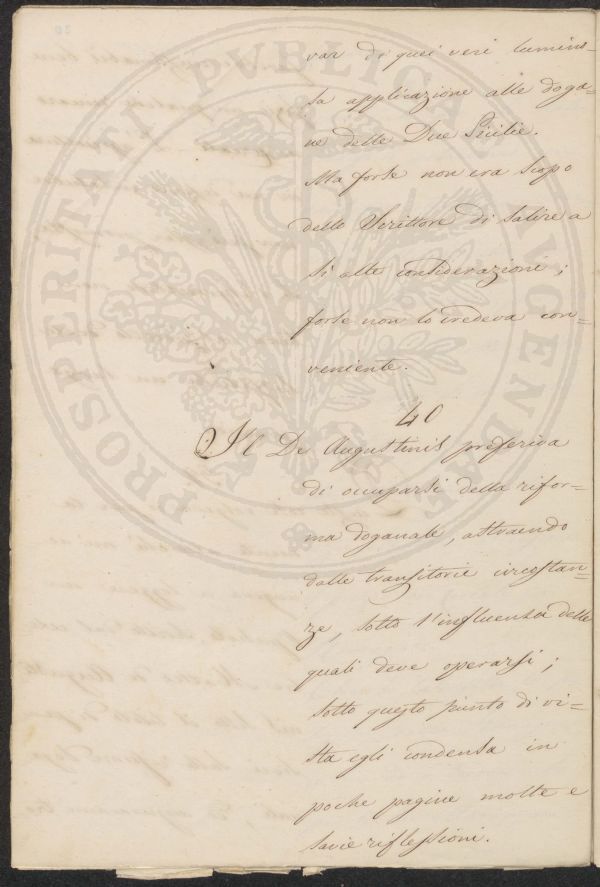 var di quei veri lumino=
sa applicazione alle doga=
ne delle Due Sicilie.
Ma forse non era scopo
dello Scrittore di salire a
sì alte considerazioni;
forse non lo credeva con=
veniente.
40
Il De Augustinis preferiva
di occuparsi della rifor=
ma doganale, astraendo
dalle transitorie circostan=
ze, sotto l'influenza delle
quali deve operarsi;
sotto questo punto di vi=
sta egli condensa in
poche pagine molte e
savie riflessioni.
PROSPERITATI PVBLICAE AVGENDAE